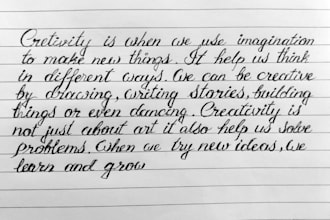 Cretivity is when we use imagination
to make new things. It help us think
in different ways. We can be creative
by drawing, writing stories, building
things or even dancing. Creativity is
not just about art it also help us solve
problems. When we try new ideas, we
learn and grow